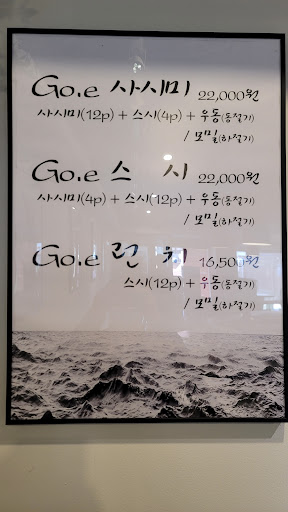 Go.e 사시미 22,000원
사시미(12p) + 스시(4p) + 우동(동절기)
/ 모밀(하절기)
Go.e 스 시 22,000원
사시미(4p) + 스시(12p) + 우동(동절기)
/ 모밀(하절기)
Go.e 런 치 16,500원
스시(12p) + 우동(동절기)
/ 모밀(하절기)